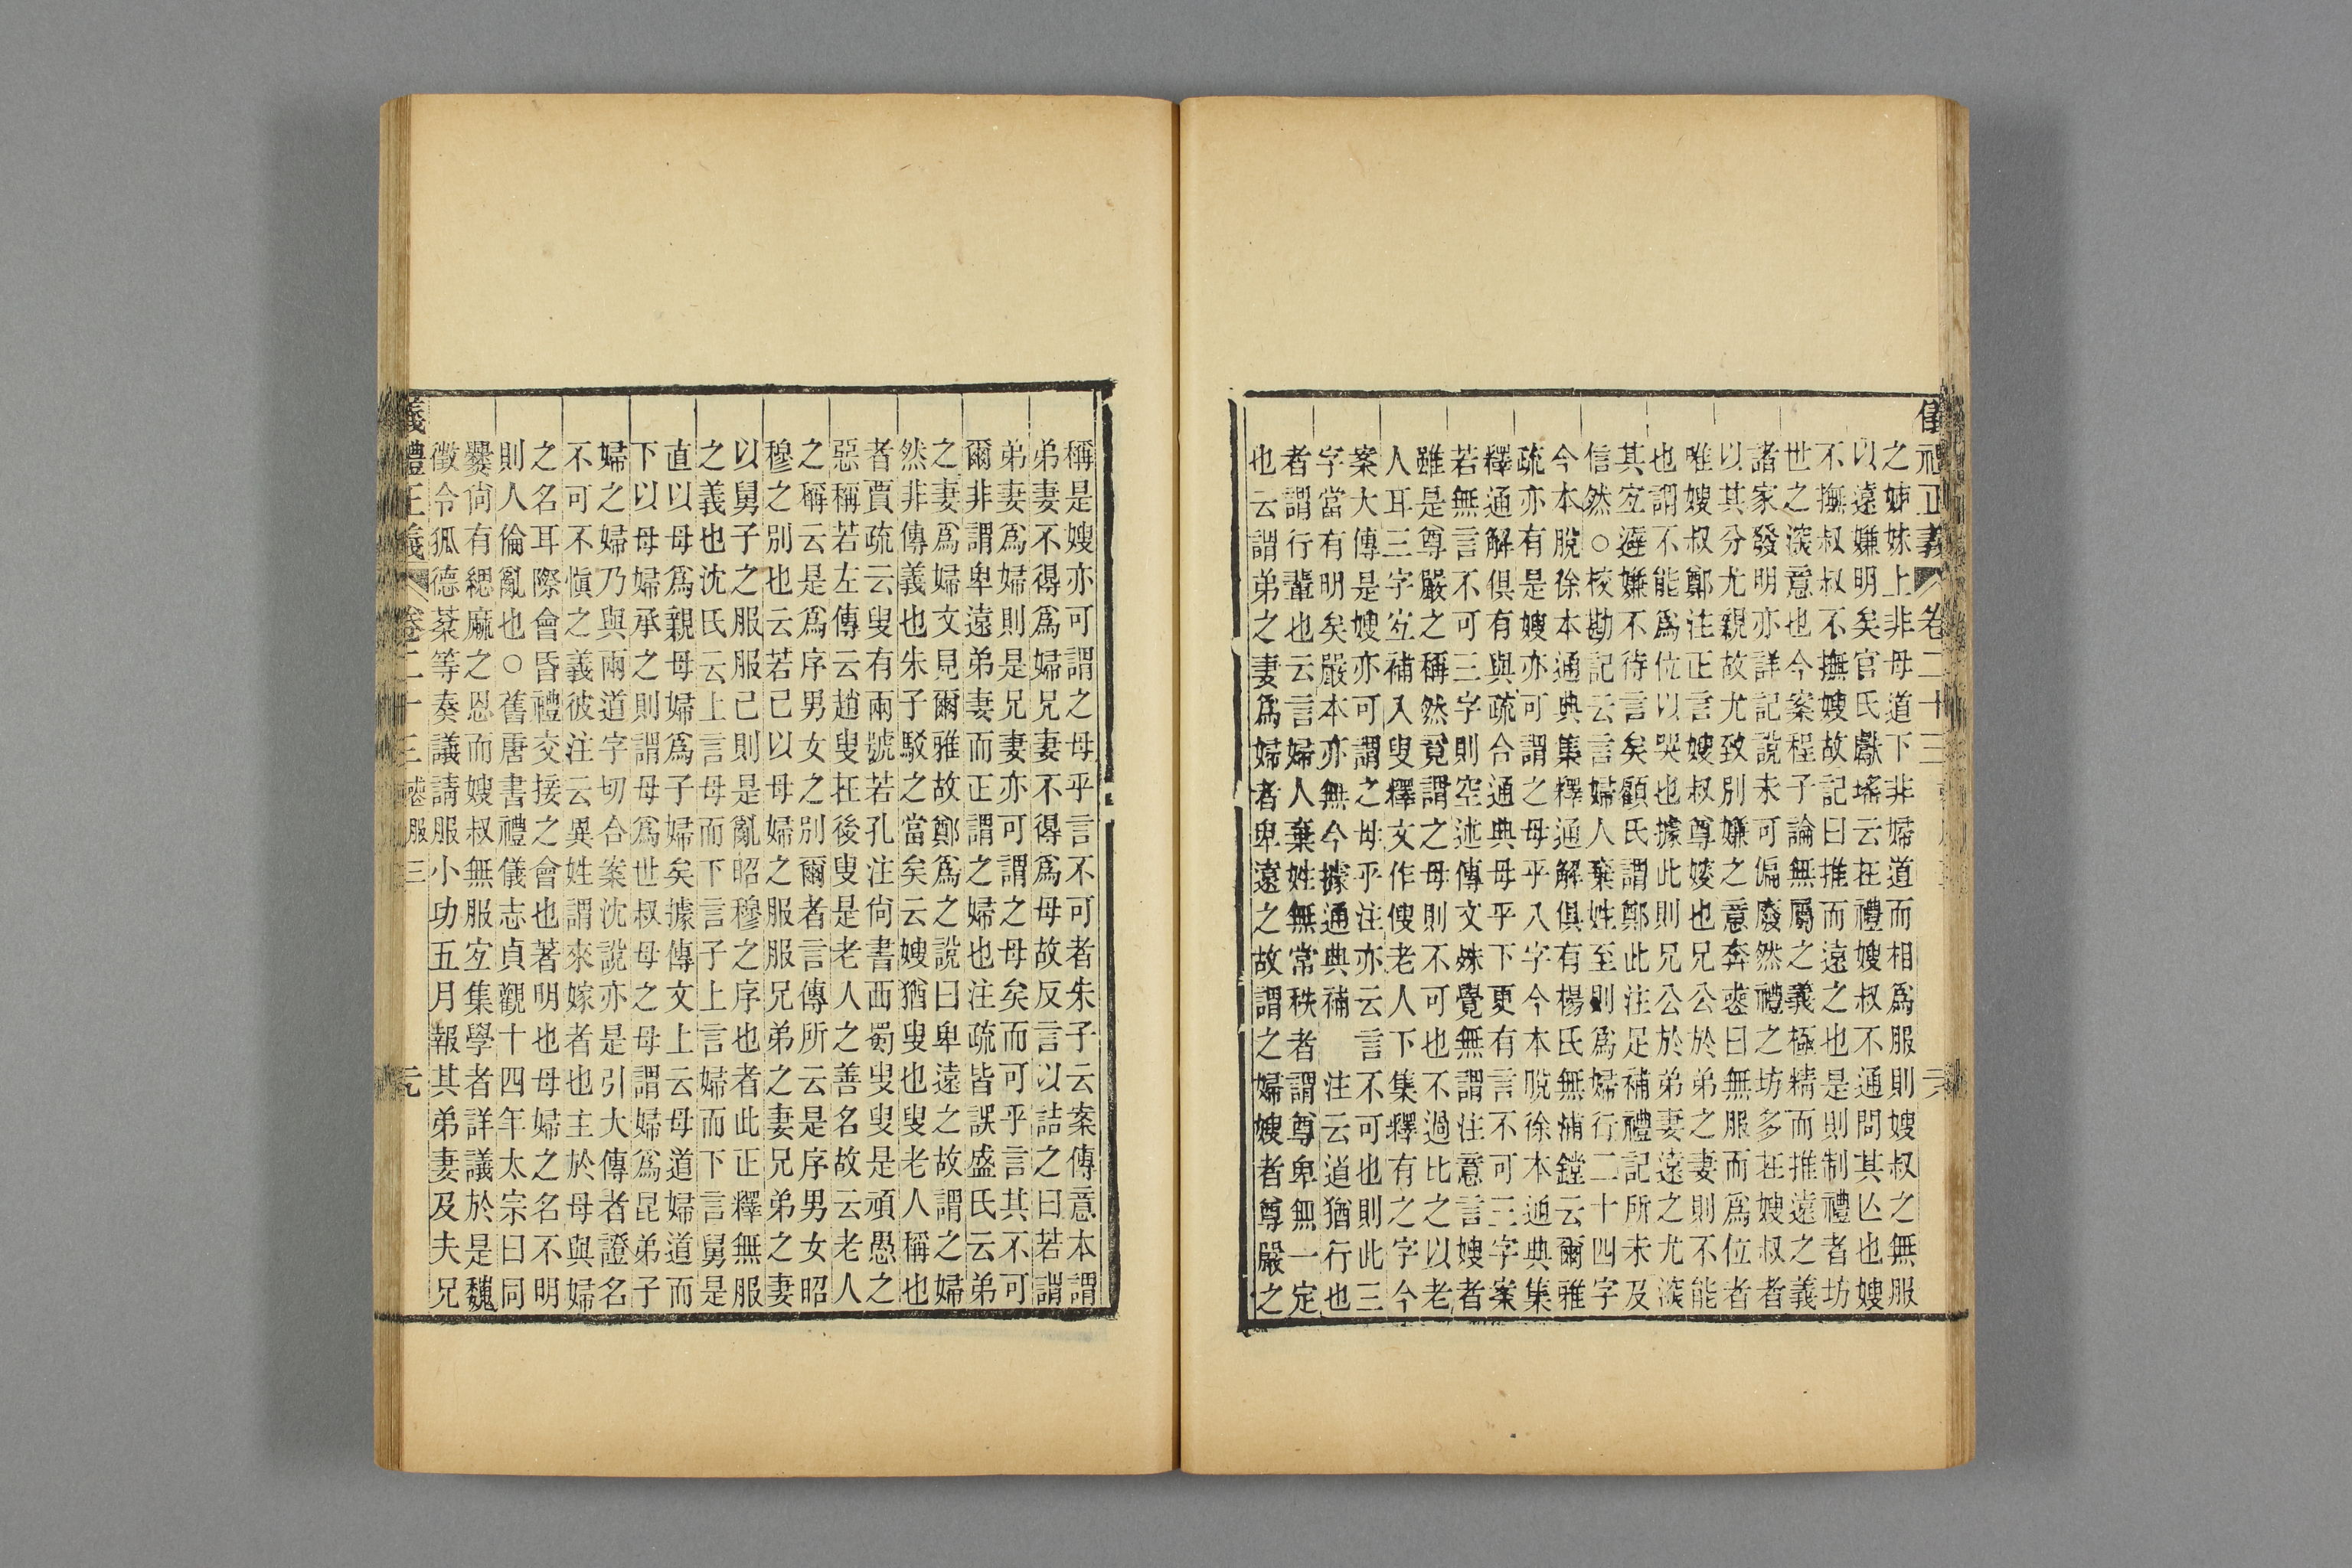 正義 卷二十三
之娣妹上非母道下非婦道而相爲服則嫂叔之無服
以遠嫌明矣官氏獻瑤云在禮嫂叔不通問其亾也嫂
不撫叔叔不撫嫂故記曰推而遠之也是則制禮者坊
世之深意也今案程子論無屬之義極精而推遠之義
諸家發明亦詳記說未可偏廢然禮之坊多在嫂叔者
以其分尤親故尤致別嫌之意奔喪曰無服而爲位者
唯嫂叔鄭注正言嫂叔尊㛐也兄公於弟之妻則不能
也謂不能爲位以哭也據此則兄公於弟妻遠之尤深
其宐避嫌不待言矣顧氏謂鄭此注足補禮記所未及
信然○校勘記云言婦人棄姓至則爲婦行二十四字
今本脫徐本通典集釋通解俱有楊氏無浦鏜云爾雅
疏亦有是嫂亦可謂之母乎八字今本脫徐本通典集
釋通解俱有與疏合通典母乎下更有言不可三字案
若無言不可三字則空述傳文殊覺無謂注意言嫂者
雖是尊嚴之稱然竟謂之母則不可也不過比之以老
人耳三字宐補入叟釋文作傁老人下集釋有之字今
案大傳是嫂亦可謂之母乎注亦云言不可也則此三
字當有明矣嚴本亦無今據通典補　注云道猶行也
者謂行輩也云言婦人棄姓無常秩者謂尊卑無一定
也云謂弟之妻爲婦者卑遠之故謂之婦嫂者尊嚴之
稱是嫂亦可謂之母乎言不可者朱子云案傳意本謂
弟妻不得爲婦兄妻不得爲母故反言以詰之曰若謂
弟妻爲婦則是兄妻亦可謂之母矣而可乎言其不可
爾非謂卑遠弟妻而正謂之婦也注疏皆誤盛氏云弟
之妻爲婦文見爾雅故鄭爲之說曰卑遠之故謂之婦
然非傳義也朱子駁之當矣云嫂猶叟也叟老人稱也
者賈疏云叟有兩號若孔注尙書西蜀叟叟是頑愚之
惡稱若左傳云趙叟在後叟是老人之善名故云老人
之稱云是爲序男女之別爾者言傳所云是序男女昭
穆之別也云若己以母婦之服服兄弟之妻兄弟之妻
以舅子之服服己則是亂昭穆之序也者此正釋無服
之義也沈氏云上言母而下言子上言婦而下言舅是
直以母爲親母婦爲子婦矣據傳文上云母道婦道而
下以母婦承之則謂母爲世叔母之母謂婦爲昆弟子
婦之婦乃與兩道字切合案沈說亦是引大傳者證名
不可不愼之義彼注云異姓謂來嫁者也主於母與婦
之名耳際會昏禮交接之會也著明也母婦之名不明
則人倫亂也○舊唐書禮儀志貞觀十四年太宗曰同
爨尙有緦麻之恩而嫂叔無服宐集學者詳議於是魏
徵令狐德棻等奏議請服小功五月報其弟妻及夫兄
禮正義 卷二十三 喪服三